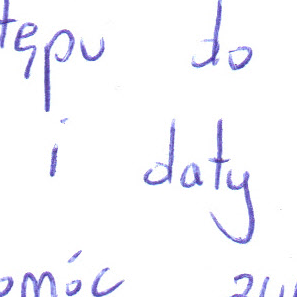 tępu do
i daty
omóc